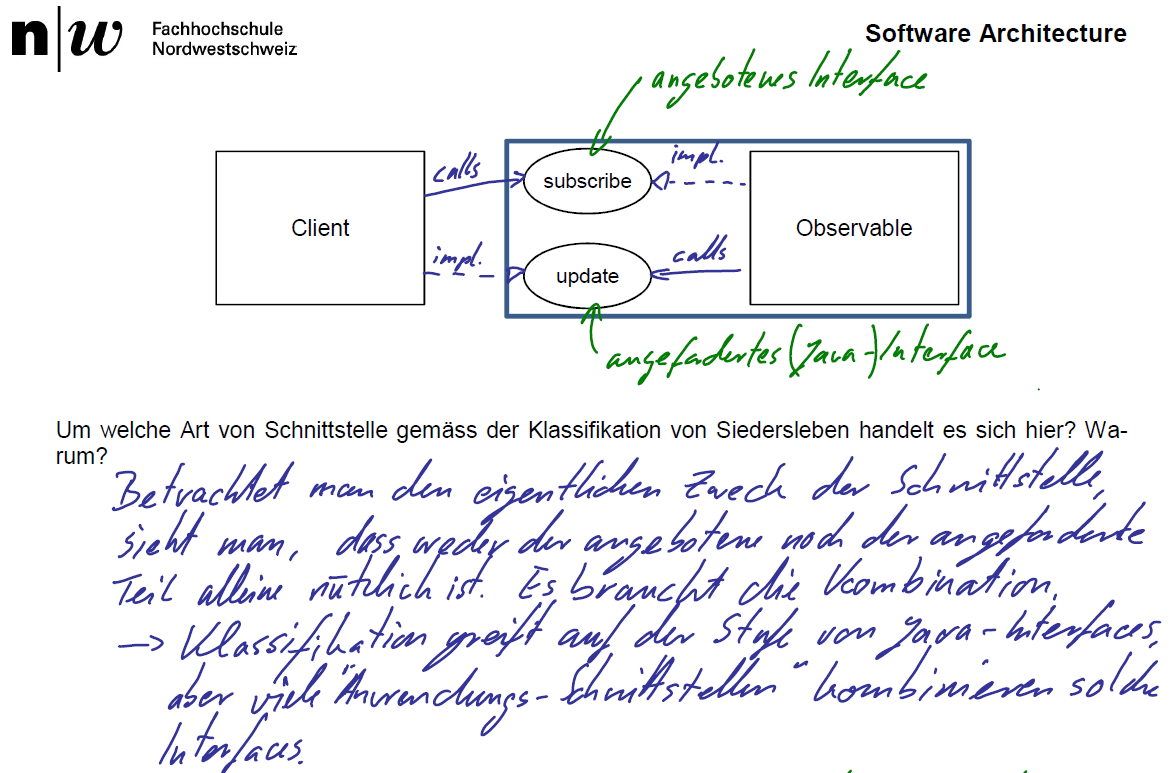 n|w Fachhochschule
Nordwestschweiz
Software Architecture
angebotenes Interface
calls
subscribe
impl.
Client
Observable
impl.
update
calls
angefordertes (Java-)Interface
Um welche Art von Schnittstelle gemäss der Klassifikation von Siedersleben handelt es sich hier? Wa-
rum?
Betrachtet man den eigentlichen Zweck der Schnittstelle,
sieht man, dass weder der angebotene noch der angeforderte
Teil alleine nützlich ist. Es braucht die Kombination.
-> Klassifikation greift auf der Stufe von Java-Interfaces,
aber viele "Anwendungs-Schnittstellen" kombinieren solche
Interfaces.